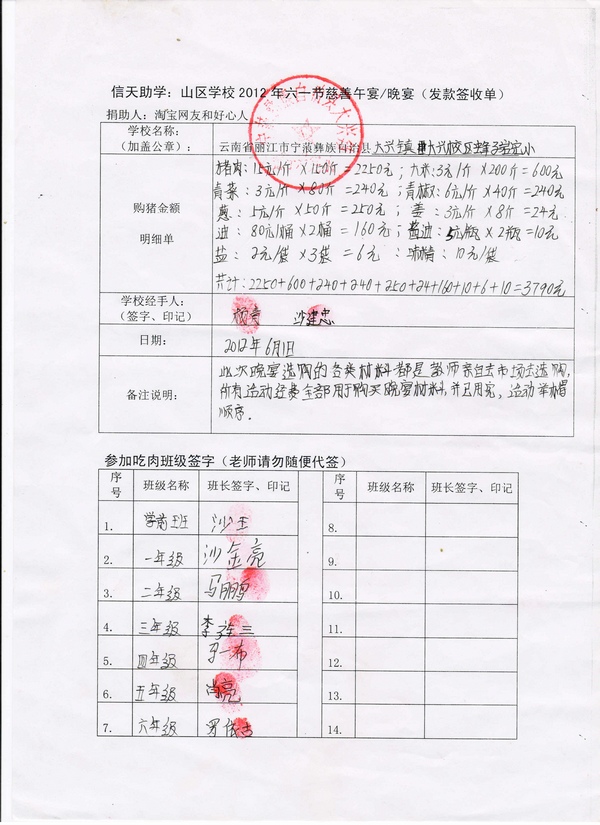 信天助学：山区学校2012年六一节慈善午宴/晚宴（发款签收单）
捐助人：淘宝网友和好心人
学校名称：
（加盖公章）：
云南省丽江市宁蒗彝族自治县大兴镇
购猪金额
明细单
猪肉：15元/斤×150斤=2250元；大米：3元/斤×200斤=600元
青菜：3元/斤×80斤=240元；青椒：6元/斤×40斤=240元
葱：5元/斤×50斤=250元；姜：3元/斤×8斤=24元
油：80元/桶×2桶=160元；酱油：5元/瓶×2瓶=10元
盐：2元/袋×3袋=6元；味精：10元/袋
共计：2250+600+240+240+250+24+160+10+6+10=3790元
学校经手人：
（签字、印记）
杨 沙建忠
日期：
2012年6月1日
备注说明：
此次晚宴选购的各类材料都是教师亲自去市场去选购，
所有运动经费全部用于购买晚宴材料，并已用完，运动举
顺序。
参加吃肉班级签字（老师请勿随便代签）
序号 班级名称 班长签字、印记 序号 班级名称 班长签字、印记
1. 学前班 沙玉 8.
2. 一年级 沙金亮 9.
3. 二年级 马鹏 10.
4. 三年级 李 三 11.
5. 四年级 布 12.
6. 五年级 尚亮 13.
7. 六年级 罗 14.